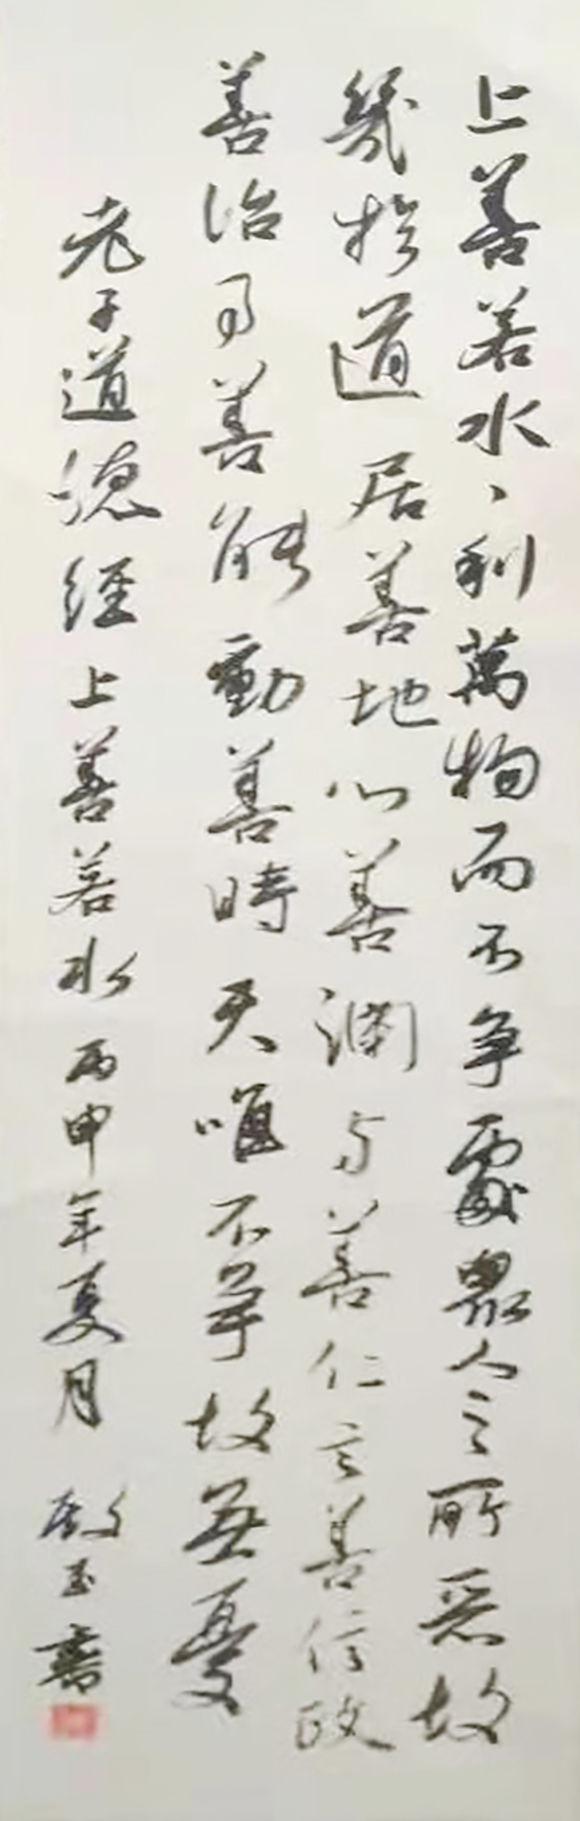 上善若水、利萬物而不争處衆人之所惡故
幾於道居善地心善渊与善仁言善信政
善治事善能動善時夫唯不争故無憂
老子道德經上善若水丙申年夏月 啟玉書